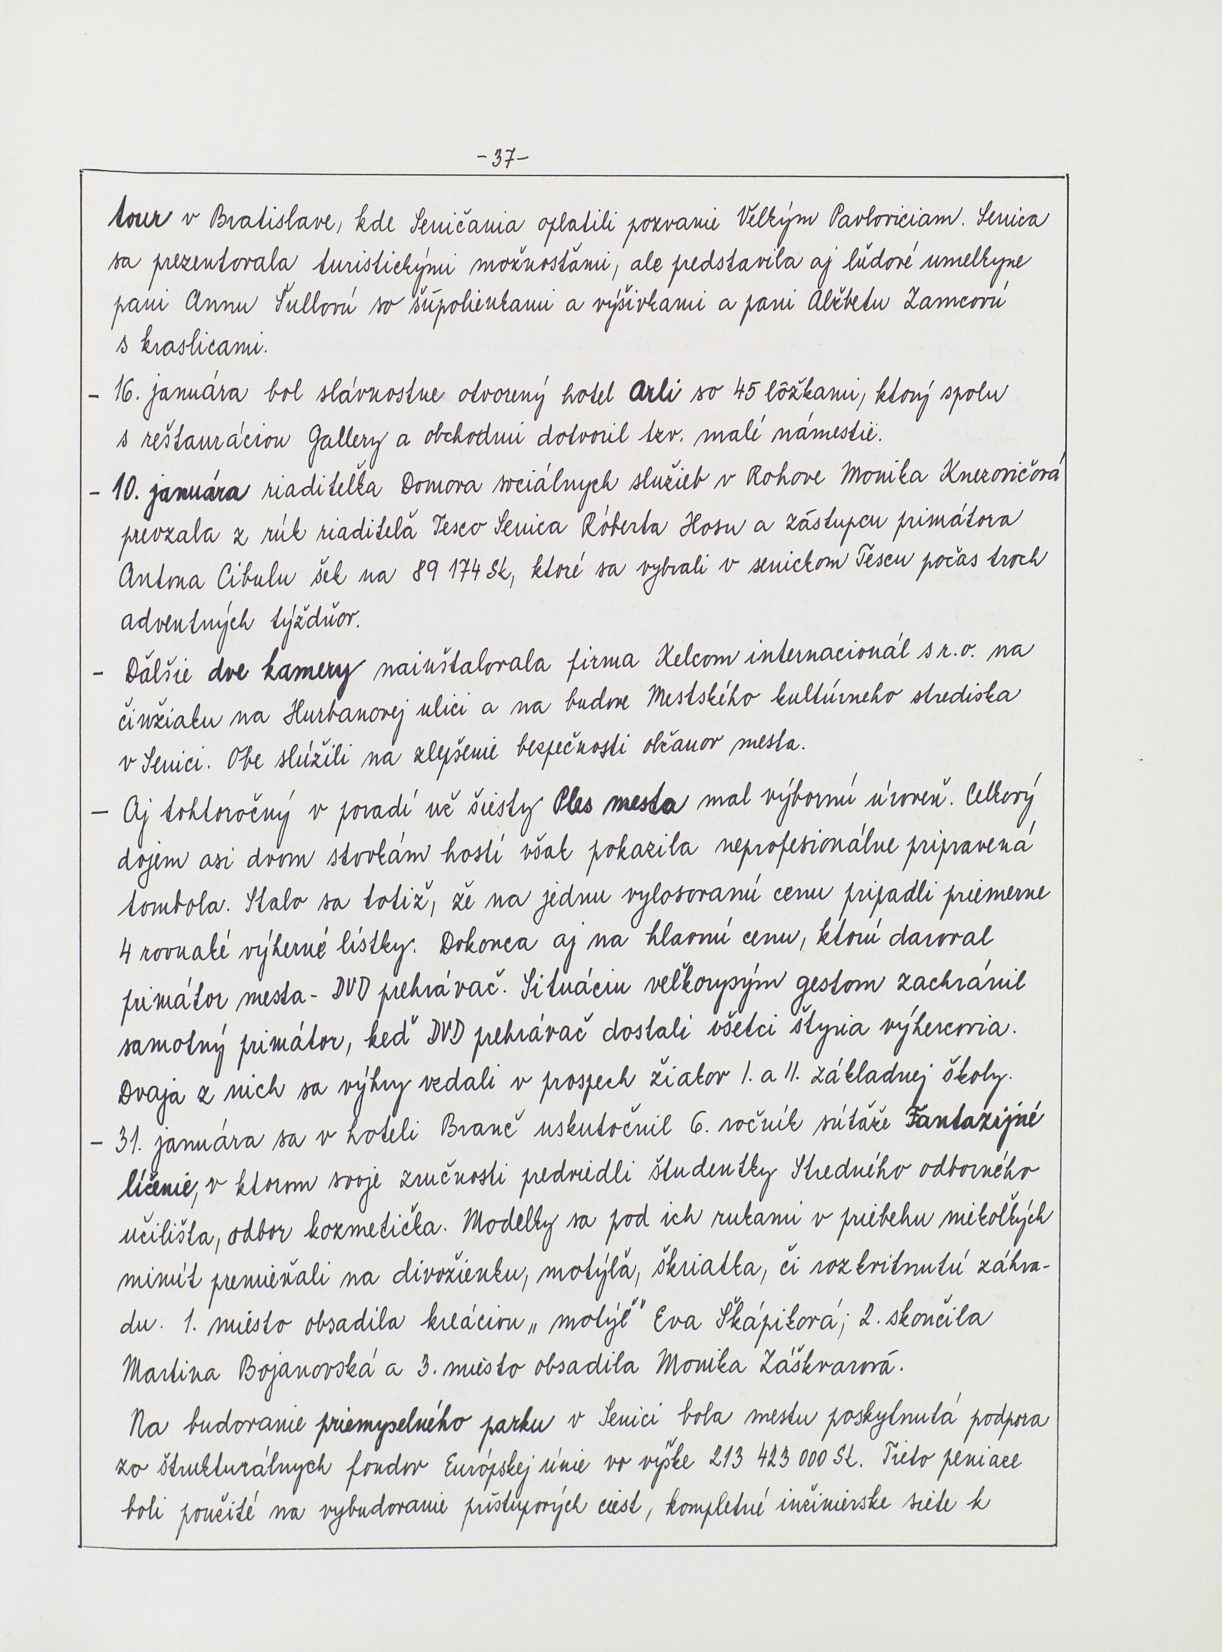 -37-
tour v Bratislave, kde Seničania oplatili pozvanie Veľkým Pavloviciam. Senica
sa prezentovala turistickými možnosťami, ale predstavila aj ľudové umelkyne
pani Annu Šullovú so šúpolienkami a výšivkami a pani Alžbetu Zamcovú
s kraslicami.
- 16. januára bol slávnostne otvorený hotel Arli so 45 lôžkami, ktorý spolu
s reštauráciou Gallery a obchodmi dotvoril tzv. malé námestie.
- 10. januára riaditeľka Domova sociálnych služieb v Rohove Monika Knezovičová
prevzala z rúk riaditeľa Tesco Senica Róberta Hosu a zástupcu primátora
Antona Cibulu šek na 89 174 Sk, ktoré sa vybrali v senickom Tescu počas troch
adventných týždňov.
- Ďalšie dve kamery nainštalovala firma Xelcom internacionál s r.o. na
činžiaku na Hurbanovej ulici a na budove Mestského kultúrneho strediska
v Senici. Obe slúžili na zlepšenie bezpečnosti občanov mesta.
- Aj tohtoročný v poradí už šiesty Ples mesta mal výbornú úroveň. Celkový
dojem asi dvom stovkám hostí však pokazila neprofesionálne pripravená
tombola. Stalo sa totiž, že na jednu vylosovanú cenu pripadli priemerne
4 rovnaké výherné lístky. Dokonca aj na hlavnú cenu, ktorú daroval
primátor mesta - DVD prehrávač. Situáciu veľkorysým gestom zachránil
samotný primátor, keď DVD prehrávač dostali všetci štyria výhercovia.
Dvaja z nich sa výhry vzdali v prospech žiakov I. a II. základnej školy.
- 31. januára sa v hoteli Branč uskutočnil 6. ročník súťaže Fantazijné
líčenie, v ktorom svoje zručnosti predviedli študentky Stredného odborného
učilišťa, odbor kozmetička. Modelky sa pod ich rukami v priebehu niekoľkých
minút premieňali na divožienku, motýľa, škriatka, či rozkvitnutú záhra-
du. 1. miesto obsadila kreáciou „motýľ" Eva Škápiková; 2. skončila
Martina Bojanovská a 3. miesto obsadila Monika Záškvarová.
Na budovanie priemyselného parku v Senici bola mestu poskytnutá podpora
zo štrukturálnych fondov Európskej únie vo výške 213 423 000 Sk. Tieto peniaze
boli použité na vybudovanie prístupových ciest, kompletné inžinierske siete k